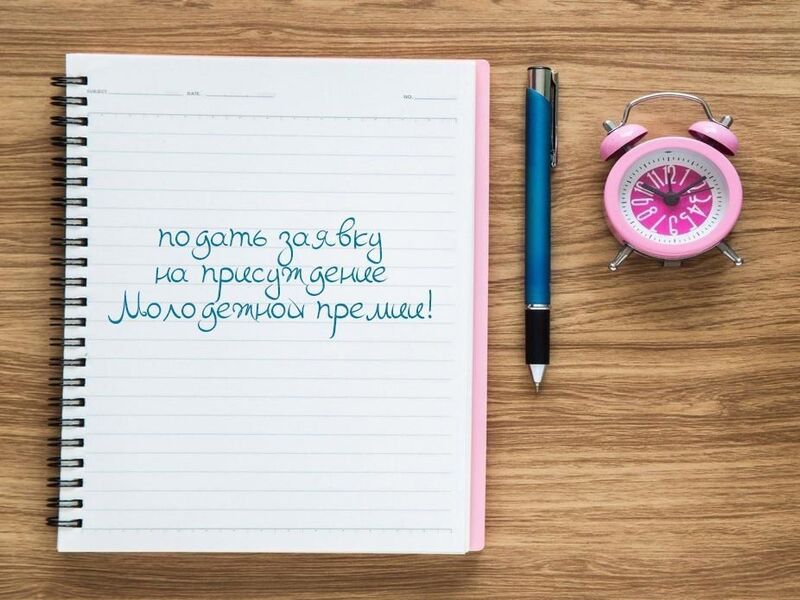 SUBJECT DATE NO.
подать заявку
на присуждение
Молодежной премии!
11 12 1 2 3 4 5 6 7 8 9 10